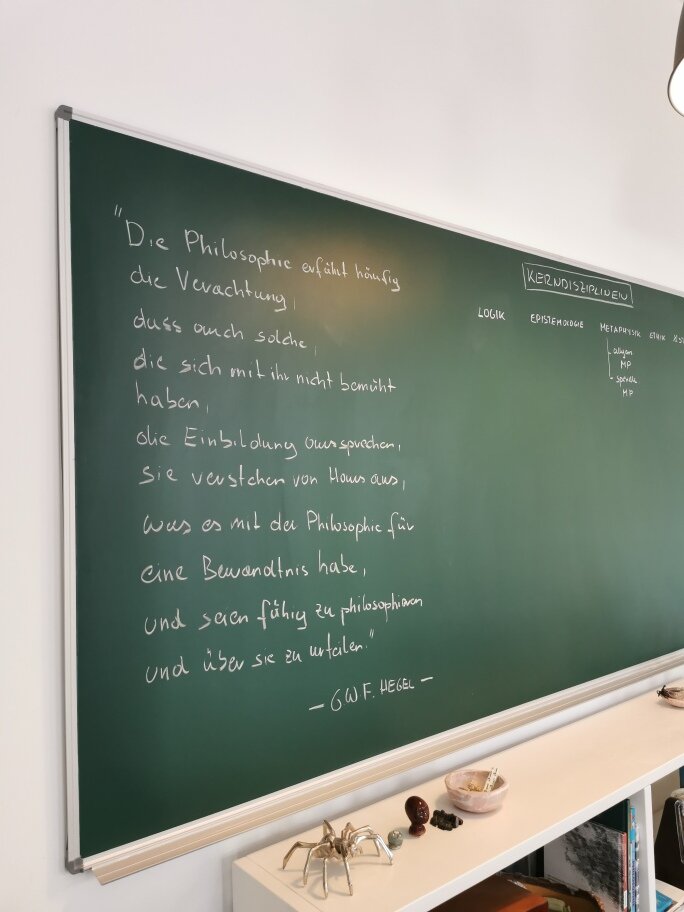 "Die Philosophie erfährt häufig
die Verachtung,
dass auch solche,
die sich mit ihr nicht bemüht
haben,
die Einbildung aussprechen,
sie verstehen von Haus aus,
was es mit der Philosophie für
eine Bewandtnis habe,
und seien fähig zu philosophieren
und über sie zu urteilen."
— GWF. HEGEL —
KERNDISZIPLINEN
LOGIK EPISTEMOLOGIE METAPHYSIK ETHIK
MP
MP